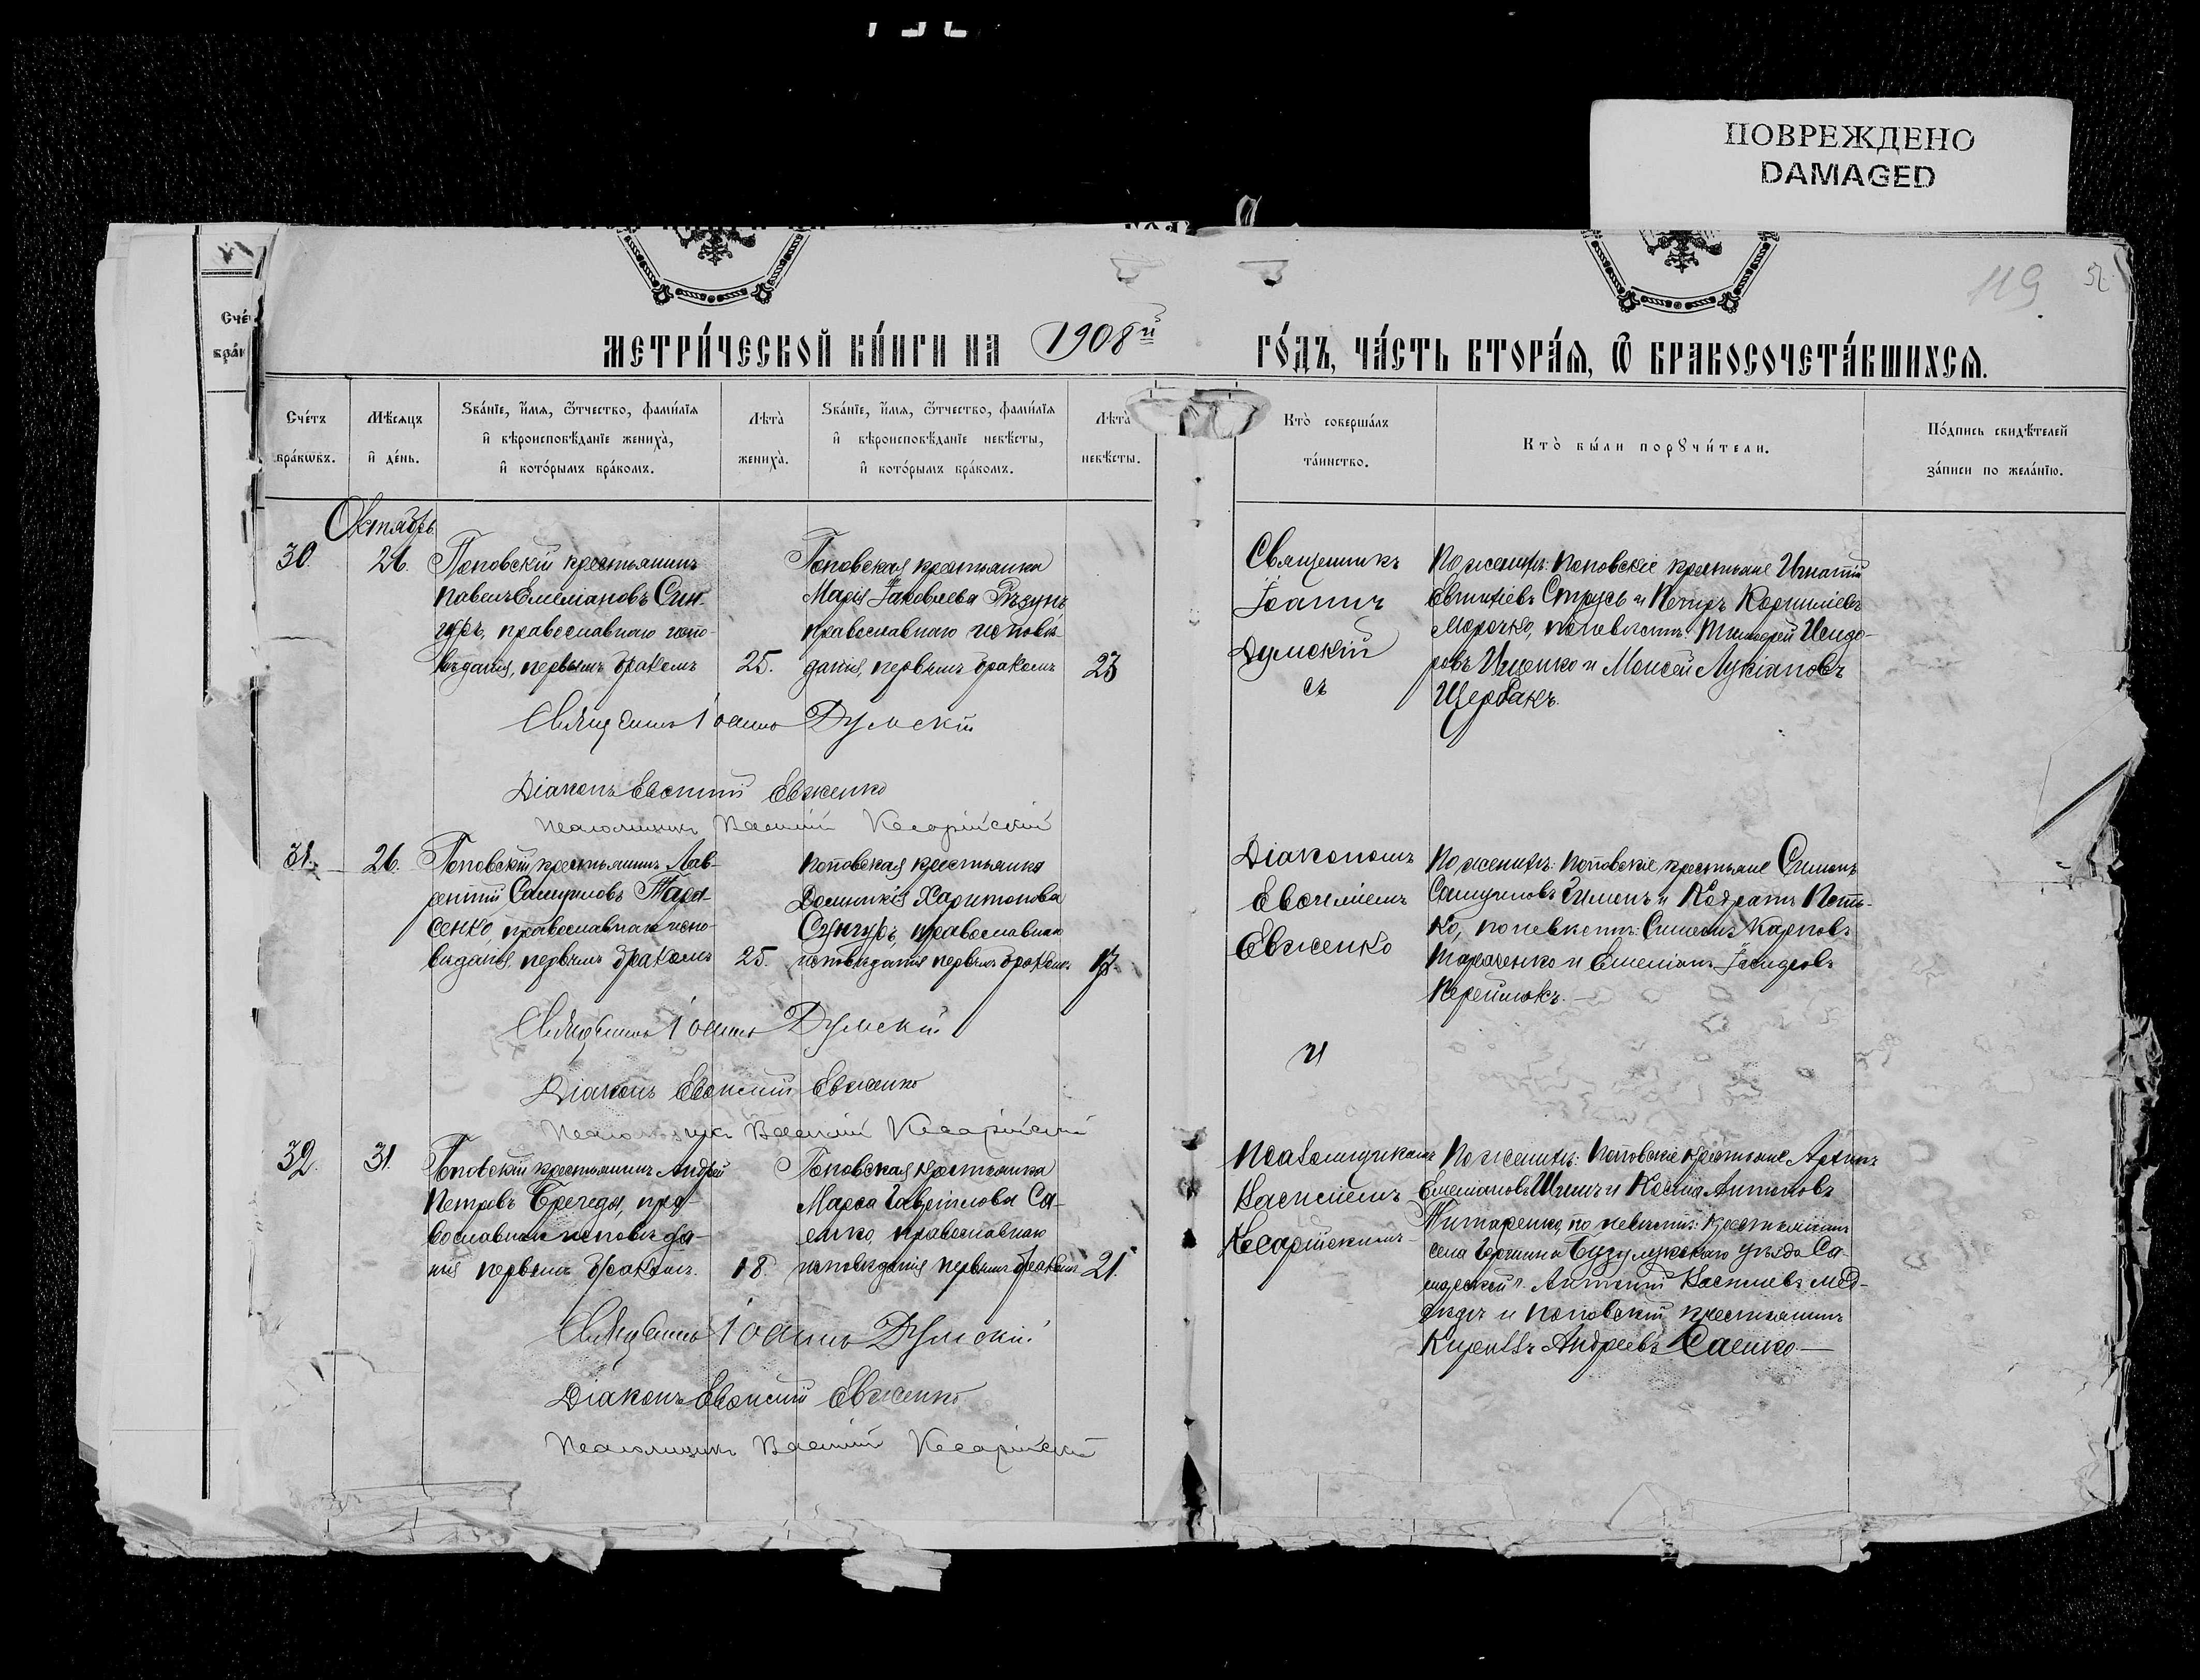 ПОВРЕЖДЕНО
DAMAGED
119
52
МЕТРИ́ЧЕСКОЙ КНИ́ГИ НА 1908й
ГО́ДЪ, ЧА́СТЬ ВТОРА́Ѧ, Ѿ БРАКОСОЧЕТА́ВШИХСѦ.
Сче́тъ бра́кѡвъ.
Мѣ́сѧцъ и҆ де́нь.
Ѕва́нїе, и҆́мѧ, ѻ҆́тчество, фами́лїѧ
и҆ вѣроисповѣ́данїе жениха̀,
и҆ кото́рымъ бра́комъ.
Лѣта̀ жениха̀.
Ѕва́нїе, и҆́мѧ, ѻ҆́тчество, фами́лїѧ
и҆ вѣроисповѣ́данїе невѣ́сты,
и҆ кото́рымъ бра́комъ.
Лѣта̀ невѣ́сты.
Кто̀ соверша́лъ
та́инство.
Кто̀ бы́ли порꙋчи́тели.
По́дпись свидѣ́телей
за́писи по жела́нїю.
Октябрь
30.
26.
Поповскій крестьянинъ
Павелъ Емеліановъ Сун-
гуръ, православнаго испо-
вѣданія, первымъ бракомъ
25.
Поповская крестьянка
Марія Іаковлева Рѣзунъ
православнаго исповѣ-
данія, первымъ бракомъ
23
Священникъ
Іоаннъ
Думскій
съ
По женихѣ: поповскіе крестьяне Игнатій
Евтихіевъ Струсь и Петръ Корниліевъ
Морочко, по невѣстѣ: Тимофей Исидо-
ровъ Ищенко и Моисей Лукіановъ
Щербакъ.
Священникъ Іоаннъ Думскій
Діаконъ Евфимій Евженко
Псаломщикъ Василій Кесарійскій
31.
26.
Поповскій крестьянинъ Лав-
рентій Самуиловъ Тара-
сенко, православнаго испо-
вѣданія, первымъ бракомъ
25.
Поповская крестьянка
Домникія Харитонова
Сунгуръ, православнаго
исповѣданія первымъ бракомъ
17.
Діакономъ
Евфиміемъ
Евженко
По женихѣ: поповскіе крестьяне Симонъ
Самуиловъ и Кодратъ
ко, по невѣстѣ: Симеонъ Карповъ
Тарасенко и Емеліанъ Исидоровъ
Священникъ Іоаннъ Думскій
и
Діаконъ Евфимій Евженко
Псаломщикъ Василій Кесарійскій
32.
31.
Поповскій крестьянинъ Андрей
Петровъ Брегеда, пра-
вославнаго исповѣда-
нія первымъ бракомъ.
18.
Поповская крестьянка
Марѳа Гавріилова Са-
енко, православнаго
исповѣданія первымъ бракомъ
21.
Псаломщикомъ
Василіемъ
Кесарійскимъ
По женихѣ: поповскіе крестьяне
Емеліановъ и Косма Антоновъ
Титаренко, по невѣстѣ: крестьянинъ
села Бузулукскаго уѣзда Са-
марской г. Антоній Василіевъ Мед-
вѣдь и поповскій крестьянинъ
Андреевъ Саенко.
Священникъ Іоаннъ Думскій
Діаконъ Евфимій Евженко
Псаломщикъ Василій Кесарійскій